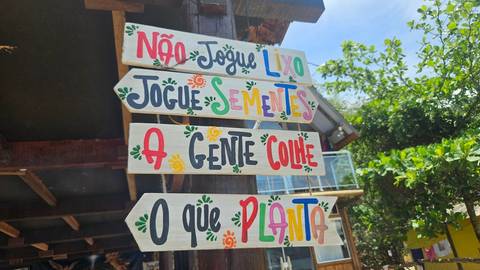 Não Jogue Lixo
Jogue Sementes
A Gente Colhe
O que Planta